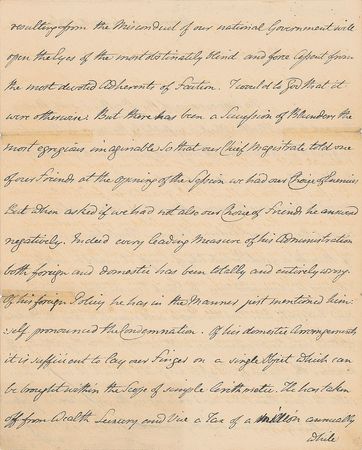 resulting from the Misconduct of our national Government will
open the Eyes of the most obstinately blind and force assent from
the most devoted Adherents of Faction. I would to God that it
were otherwise. But there has been a Succession of Blunders the
most egregious imaginable so that our Chief Magistrate told one
of our Friends at the opening of the Session we had our Choice of Enemies
But when asked if we had not also our Choice of Friends he answered
negatively. Indeed every leading Measure of his Administration
both foreign and domestic has been totally and entirely wrong.
Of his foreign Policy he has in the Manner just mentioned him-
self pronounced the Condemnation. Of his domestic Arrangements
it is sufficient to lay our Finger on a single Object which can
be brought within the Scope of simple Arithmetic. He has taken
off from Wealth Luxury and Vice a Tax of a million annually
while